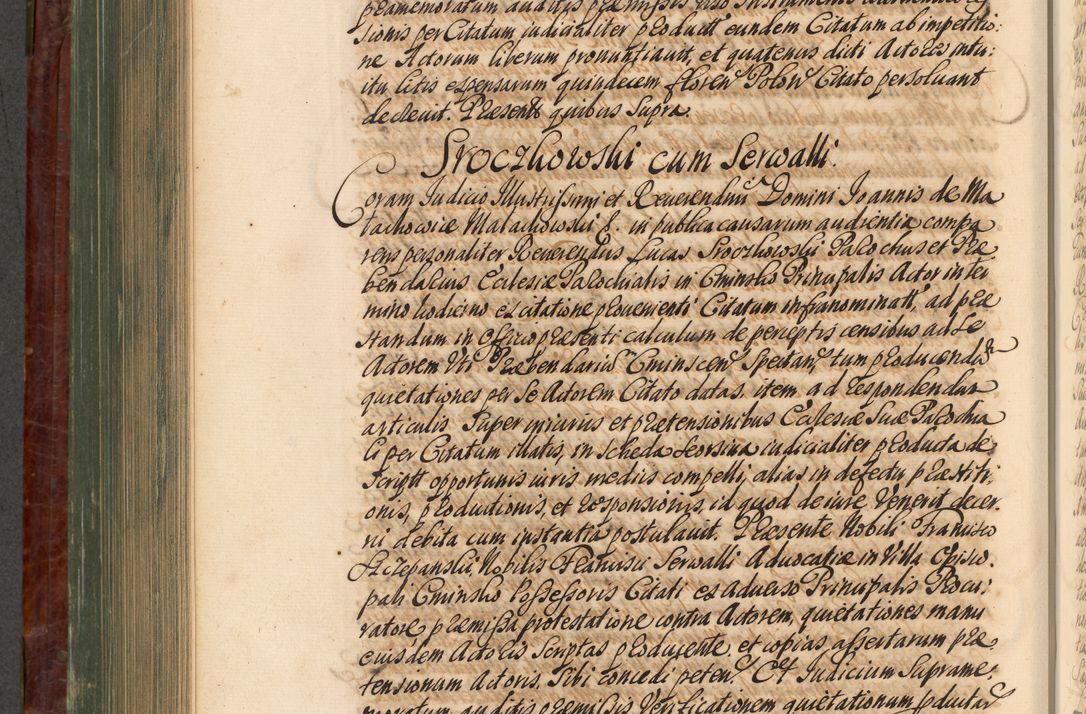 praememoratum auditis praemissis viso Instrumento
sionis per Citatum iudicialiter product eundem Citatum ab impetitio:
ne Actorum liberum pronuntiauit, et quatenus dicti Actores intu:
itu litis expensarum quindecem floren Polon Citato persoluant
decreuit. Praesentt quibus Supra.
Sroczkowski cum Serwalli.
Coram Iudicio Illustrissimi et Reuerendissi Domini Ioannis de Ma
łachowice Małachowski E. in publica causarum audientia compa
rens personaliter Reuerendus Lucas Sroczkowski Parochus et Prae
bendarius Ecclesiae Parochialis in Cminsko Principalis Actor in ter
mino hodierno ex citatione prouenienti Citatum infranominatt, ad prae
standum in officio praesenti calculum de perceptis censibus ad Se
Actorem Uti Praebendarium Cminscen Spectan, tum producendas
quietationes per Se Actorem Citato datas, item ad respondendum
articulis Super iniuriis et praetensionibus Ecclesiae Suae Parochia
li per Citatum illatis, in scheda seorsiua iudicialiter producta de
scriptt opportunis iuris mediis compelli, alias in defectu praestiti:
onis, productionis, et responsionis, id quod de iure Venerit decer:
ni debita cum instantia postulauit. Praesente Nobili Francisco
Szczepanski, Nobilis Francisci Serwalli Aduocatiae in Villa Episco:
pali Cminsko Possessoris Citati ex aduerso Principalis Procu:
ratore praemissa protestatione contra Actorem, quietationes manu
eiusdem Actoris Scriptas producente, et copias assertarum prae
tensionum Actoris, Sibi concedi peten. Et Iudicium Suprame:
moratum, auditis praemissis Verificationem quietationum productar